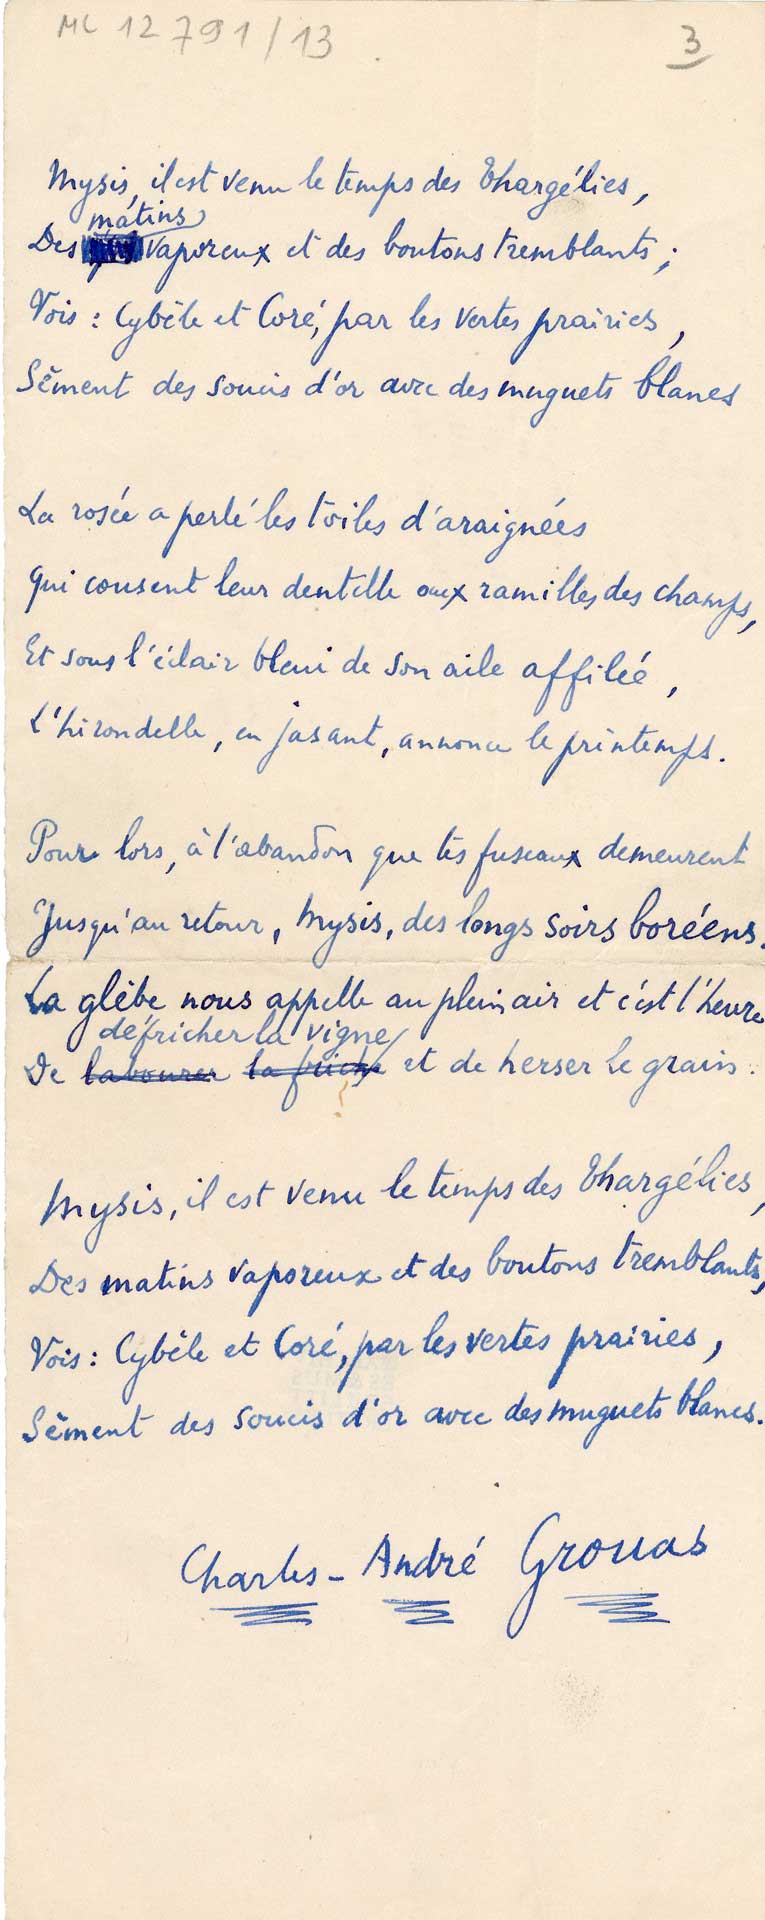 MC 12791/13
3
Mysis, il est venu le temps des Thargélies,
matins
Des vaporeux et des boutons tremblants ;
Vois : Cybèle et Coré, par les vertes prairies,
Sèment des soucis d'or avec des muguets blancs
La rosée a perlé les toiles d'araignées
Qui cousent leur dentelle aux ramilles des champs,
Et sous l'éclair bleui de son aile affilée,
L'hirondelle, en jasant, annonce le printemps.
Pour lors, à l'abandon que tes fuseaux demeurent
Jusqu'au retour, Mysis, des longs soirs boréens.
La glèbe nous appelle au plein air et c'est l'heure
défricher la vigne
De labourer la friche et de herser le grain.
Mysis, il est venu le temps des Thargélies,
Des matins vaporeux et des boutons tremblants,
Vois : Cybèle et Coré, par les vertes prairies,
Sèment des soucis d'or avec des muguets blancs.
Charles-André Grouas